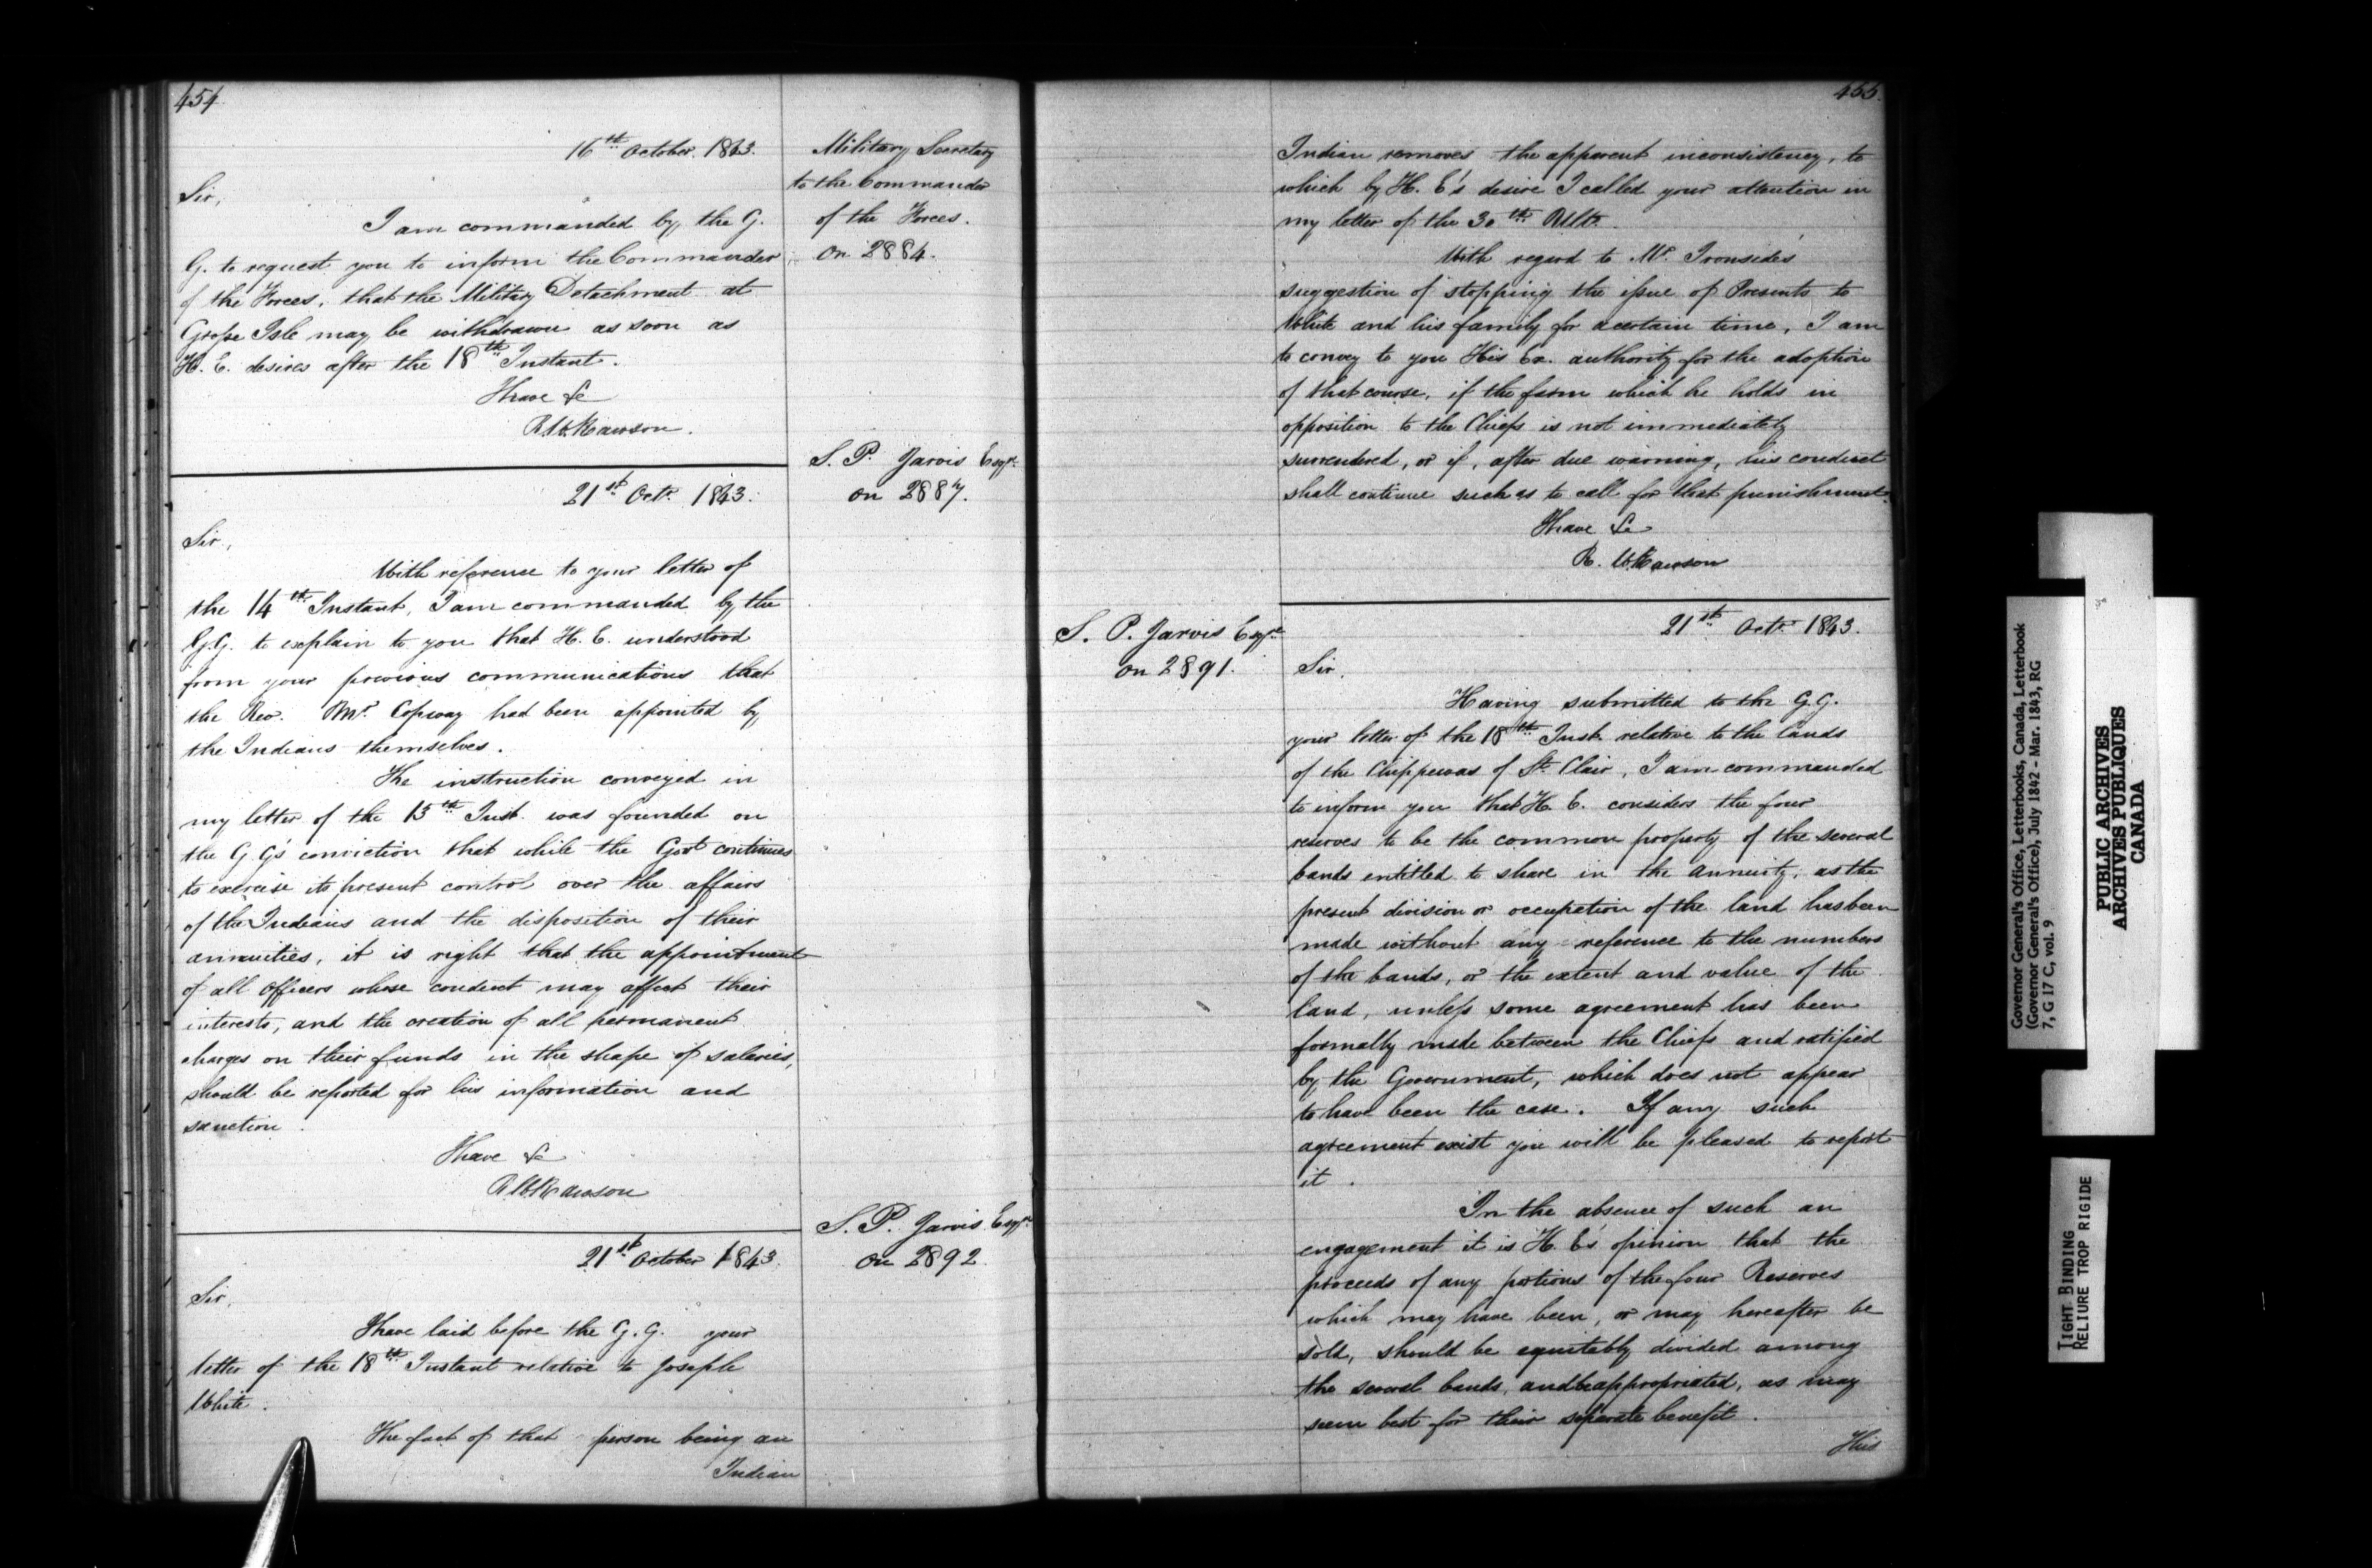 454
16th October. 1843.
Military Secretary
to the Commander
of the Forces.
on 2884.
Sir,
I am commanded by the G.
G. to request you to inform the Commander
of the Forces, that the Military Detachment at
Grosse Isle may be withdrawn as soon as
H. E. desires after the 18th Instant.
I have &c
R W Rawson.
S. P. Jarvis Esqr.
on 2887.
21st Octr. 1843.
Sir,
With reference to your letter of
the 14th Instant, I am commanded by the
G.G. to explain to you that H. E. understood
from your previous communications that
the Rev. Mr. Copway had been appointed by
the Indians themselves.
The instruction conveyed in
my letter of the 15th Inst. was founded on
the G.G's conviction that while the Govt continues
to exercise its present control over the affairs
of the Indians and the disposition of their
annuities, it is right that the appointment
of all Officers whose conduct may affect their
interests, and the creation of all permanent
charges on their funds in the shape of salaries,
should be reported for his information and
sanction.
I have &c
R W Rawson
S. P. Jarvis Esqr.
on 2892
21st October 1843.
Sir,
I have laid before the G.G. your
letter of the 18th Instant relative to Joseph
White.
The fact of that person being an
Indian
455.
Indian removes the apparent inconsistency, to
which by H. E's desire I called your attention in
my letter of the 30th Ulto.
With regard to Mr. Ironside's
suggestion of stopping the issue of Presents to
White and his family for a certain time, I am
to convey to you His Ex. authority for the adoption
of that course, if the farm which he holds in
opposition to the Chiefs is not immediately
surrendered, or if, after due warning, his conduct
shall continue such as to call for that punishment.
I have &c
R. W Rawson
S. P. Jarvis Esqre
on 2891.
21st Octr. 1843.
Sir,
Having submitted to the G.G.
your letter of the 18th Inst. relative to the lands
of the Chippewas of St. Clair, I am commanded
to inform you that H. E. considers the four
reserves to be the common property of the several
bands entitled to share in the annuity, as the
present division or occupation of the land has been
made without any reference to the numbers
of the bands, or the extent and value of the
land, unless some agreement has been
formally made between the Chiefs and ratified
by the Government, which does not appear
to have been the case. If any such
agreement exist you will be pleased to report
it.
In the absence of such an
engagement it is H. E's opinion that the
proceeds of any portions of the four Reserves
which may have been, or may hereafter be
sold, should be equitably divided among
the several bands, and be appropriated, as may
seem best for their separate benefit.
This
Governor General's Office, Letterbooks, Canada, Letterbook
(Governor General's Office), July 1842 - Mar. 1843, RG
7, G 17 C, vol. 9
PUBLIC ARCHIVES
ARCHIVES PUBLIQUES
CANADA
TIGHT BINDING
RELIURE TROP RIGIDE